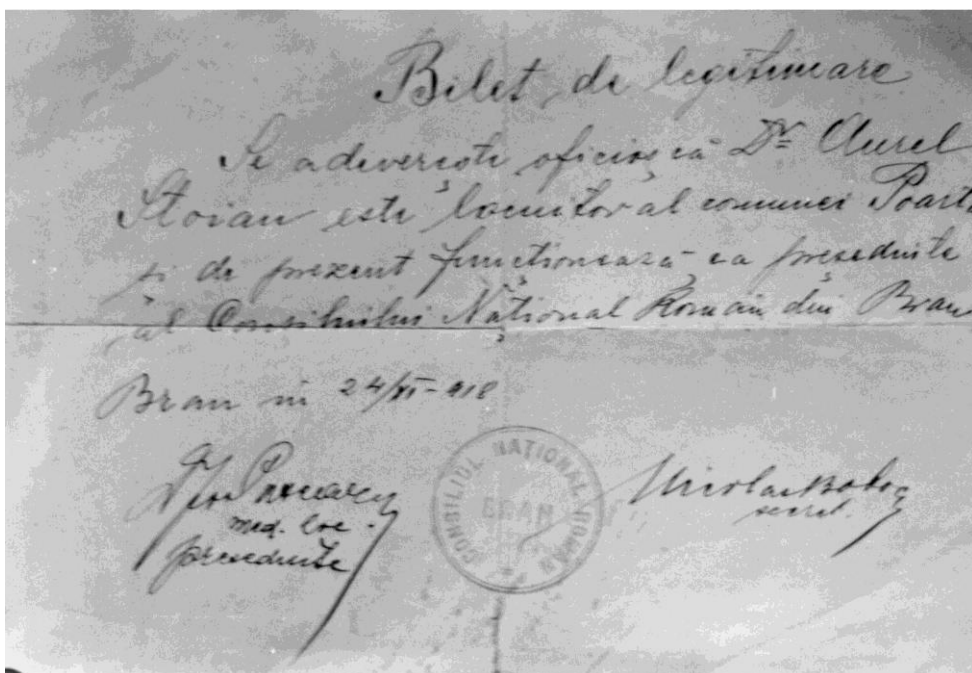 Bilet de legitimare
Se adeverește oficios că Dr Aurel
Stoian este locuitor al comunei Poarta
și de prezent funcționează ca președinte
al Consiliului Național Român din Bran
Bran in 24/XI-918
președinte
Nicolae
secret.
CONSILIUL NAȚIONAL ROMÂN
BRAN